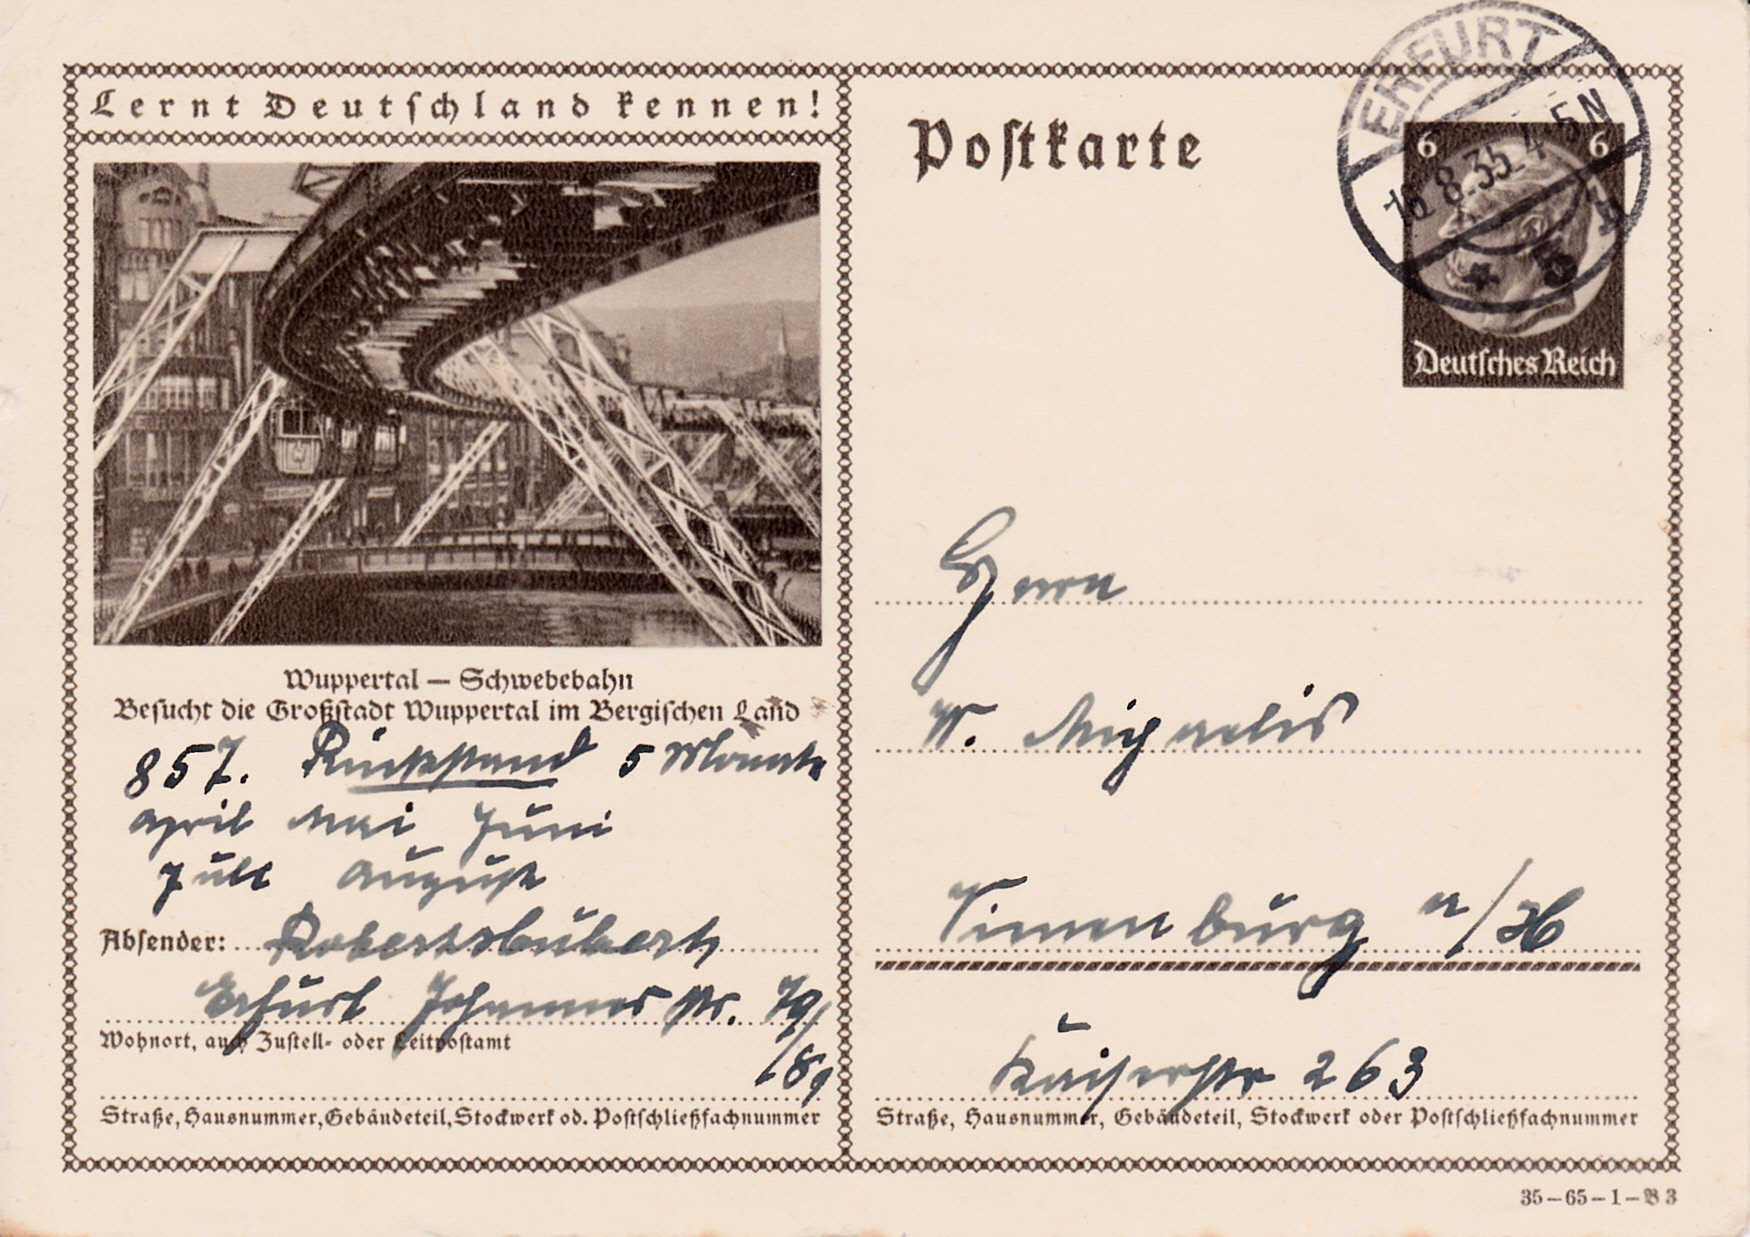 Lernt Deutschland kennen!
Wuppertal — Schwebebahn
Besucht die Großstadt Wuppertal im Bergischen Land
857. Rückstand 5 Monate
April Mai Juni
Juli August
Absender:
Erfurt Johannesstr. 79/
Wohnort, auch Zustell- oder Leitpostamt
Straße, Hausnummer, Gebäudeteil, Stockwerk od. Postschließfachnummer
Postkarte
ERFURT
16.8.35. 4-5 N
* 5 h
6 6
Deutsches Reich
Herrn
W. Michaelis
burg a/H
Kaiserstr 263
Straße, Hausnummer, Gebäudeteil, Stockwerk oder Postschließfachnummer
35–65–1–B 3